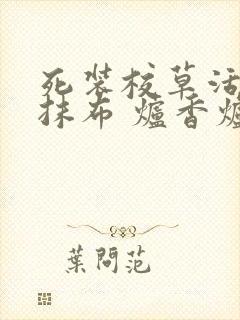 死裝校草活
抹布 爐香爐
葉問范